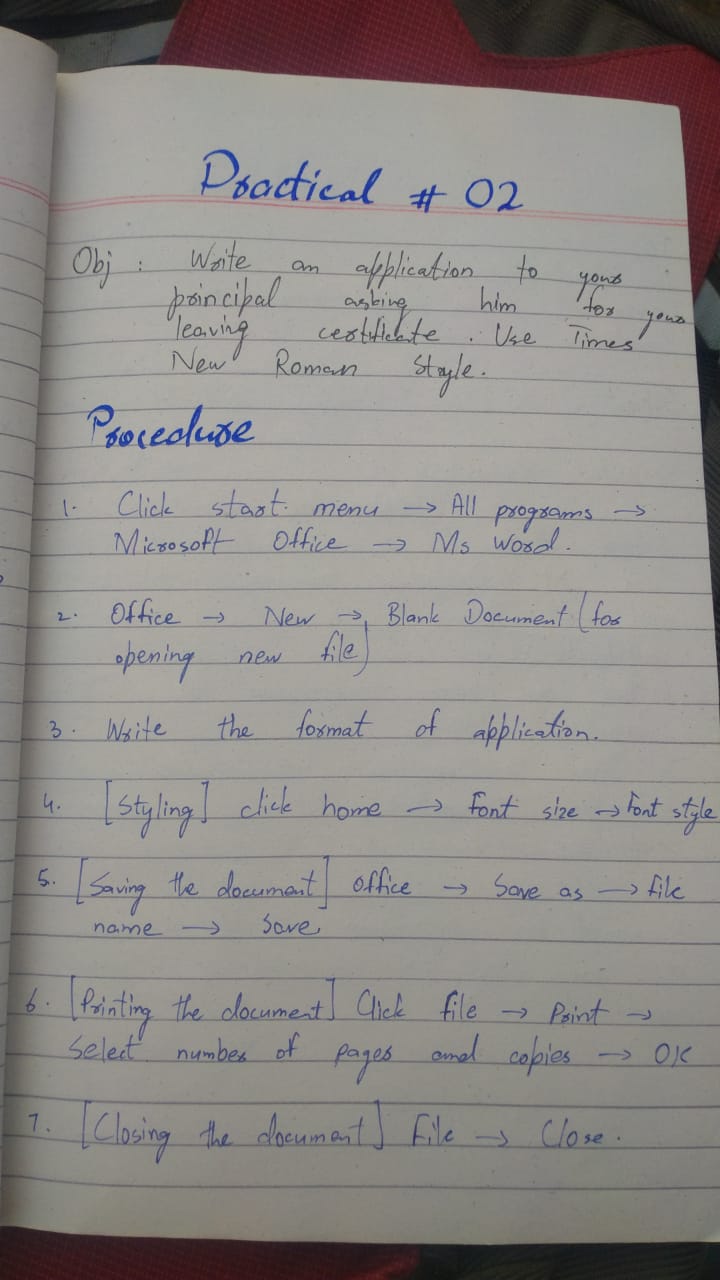 Practical # 02
Obj : Write an application to your
principal asking him for your
leaving certificate. Use Times
New Roman Style.
Procedure
1. Click start menu → All programs →
Microsoft Office → Ms Word.
2. Office → New → Blank Document (for
opening new file)
3. Write the format of application.
4. [Styling] click home → Font size → Font style
5. [Saving the document] Office → Save as → file
name → Save.
6. [Printing the document] Click file → Print →
Select number of pages and copies → OK
7. [Closing the document] File → Close.